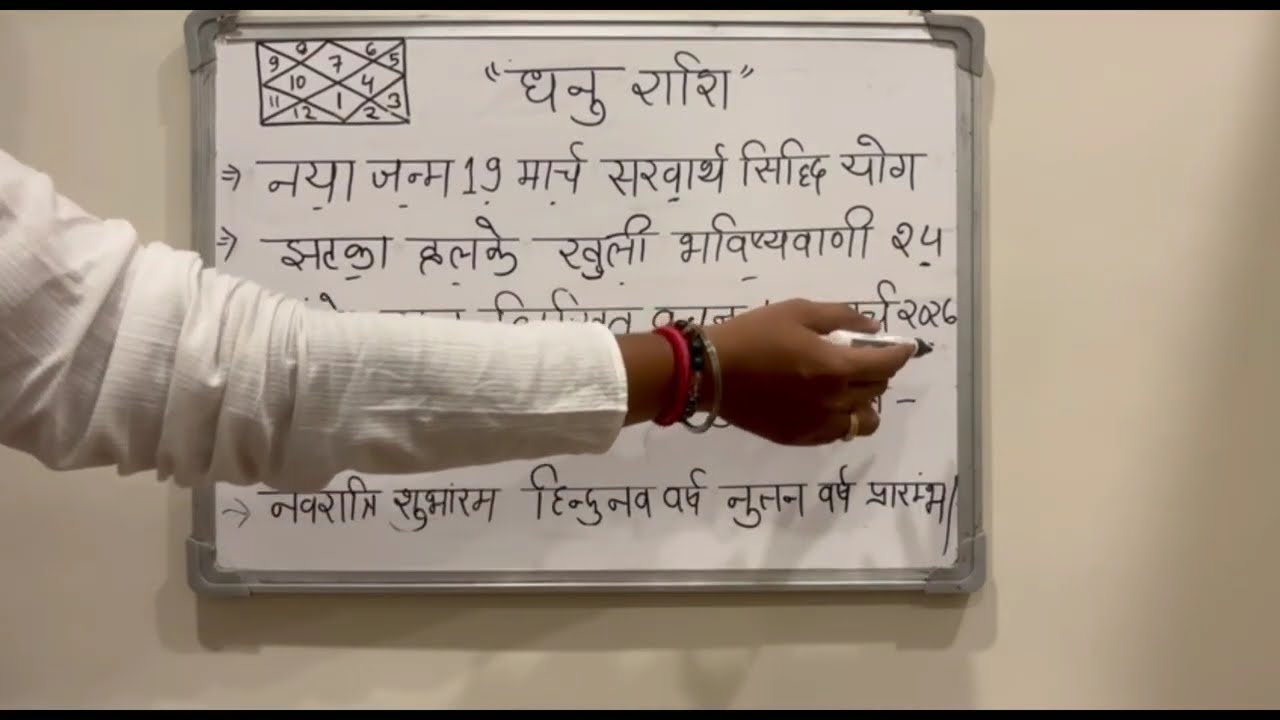 8 6
9 7 5
10 4
11 1 3
12 2
"धनु राशि"
⇒ नया जन्म 19 मार्च सरवार्थ सिद्धि योग
⇒ झटका हलके खुली भविष्यवाणी २५
२०२६
-
→ नवरात्रि शुभांरम हिन्दु नव वर्ष नुतन वर्ष प्रारम्भ/